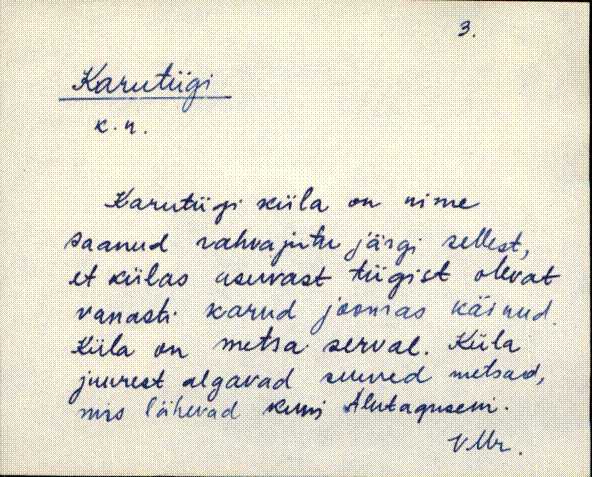 3.
Karutiigi
k.n.
Karutiigi küla on nime
saanud rahvajutu järgi sellest,
et külas asuvast tiigist olevat
vanasti karud joomas käinud.
Küla on metsa serval. Küla
juurest algavad suured metsad,
mis lähevad kuni Alutaguseni.
VMr.